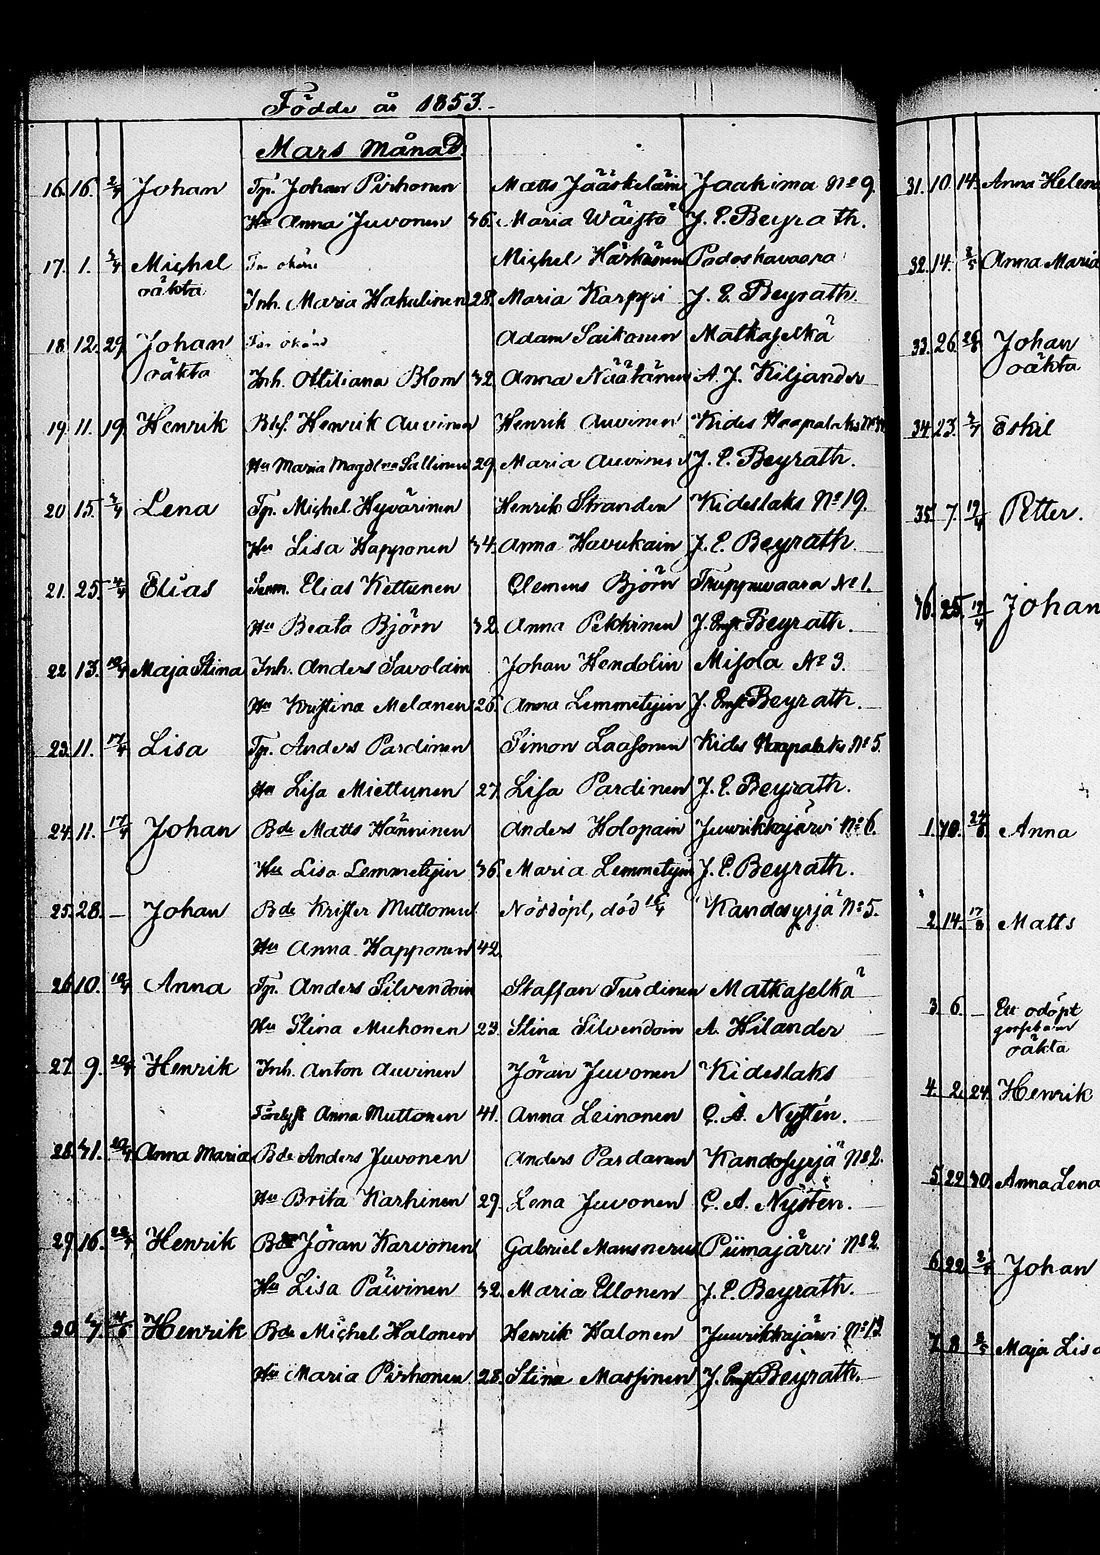 Födde år 1853.
Mars Månad.
16. 16. 2/4 Johan Tp. Johan Pirhonen Matts Jääskeläin Jaakima No 9.
Hu Anna Juvonen 36. Maria Wäistö J. E. Beyrath.
17. 1. 3/4 Michel Far okänd Michel Härkönen Potoskavaara
oäkta Inh. Maria Hakulinen 28. Maria Karppi J. E. Beyrath.
18. 12. 29. Johan Far okänd Adam Saikonen Matkaselkä
oäkta Inh. Ottiliana Blom 32. Anna Näätänen A. J. Kiljander
19. 11. 19. Henrik Henrik Auvinen Henrik Auvinen Kides Haapalaks
Hu Maria Magdlna Sallinen 29. Maria Auvinen J. E. Beyrath.
20. 15. 3/4 Lena Tp. Michel Hyvärinen Henrik Stranden Kideslaks No 19.
Hu Lisa Happonen 34. Anna Havukain J. E. Beyrath.
21. 25. 4/4 Elias Elias Kettunen Clemens Björn No 1.
Hu Beata Björn 32. Anna Pekkinen J. Beyrath.
22. 13. 10/4 Maja Stina Inh. Anders Savolain Johan Hendolin Misola No 3.
Hu Kristina Melanen 26. Anna Lemmetyin J. Beyrath.
23. 11. 17/4 Lisa Tp. Anders Pardinen Simon Laasonen Kides Haapalaks No 5.
Hu Lisa Miettunen 27. Lisa Pardinen J. E. Beyrath.
24. 11. 17/4 Johan Bde Matts Hänninen Anders Holopain Juurikkajärvi No 6.
Hu Lisa Lemmetyin 36. Maria Lemmetyin J. E. Beyrath.
25. 28. — Johan Bde Krister Muttonen Nöddöpt, död 16/4 Kandosyrjä No 5.
Hu Anna Happonen 42.
26. 10. 10/4 Anna Tp. Anders Silvendoin Staffan Turdinen Matkaselkä
Hu Stina Muhonen 23. Stina Silvendoin A. Hilander
27. 9. 20/4 Henrik Inh. Anton Auvinen Jöran Juvonen Kideslaks
Anna Muttonen 41. Anna Leinonen C. A. Nystén.
28. 31. 20/4 Anna Maria Bde Anders Juvonen Anders Pardanen Kandosyrjä No 2.
Hu Brita Karhinen 29. Lena Juvonen C. A. Nystén.
29. 16. 23/4 Henrik Bde Jöran Karvonen Gabriel Mansnerus Piimajärvi No 2.
Hu Lisa Päivinen 32. Maria Ellonen J. E. Beyrath.
30. Henrik Bde Michel Halonen Henrik Halonen Juurikkajärvi No 13.
Hu Maria Pirhonen 28. Stina Massinen J. Beyrath.
31. 10. 14. Anna Helena
32. 14. 3/5 Anna Maria
33. 26. Johan
oäkta
34. 23. Eskil
35. 7. Petter.
36. 25. Johan
1. Anna
2. 14. 17/8 Matts
3. 6. — Ett odöpt
oäkta
4. 2. 24. Henrik
5. 22. 30. Anna Lena
6. 22. Johan
7. 8. Maja Lisa